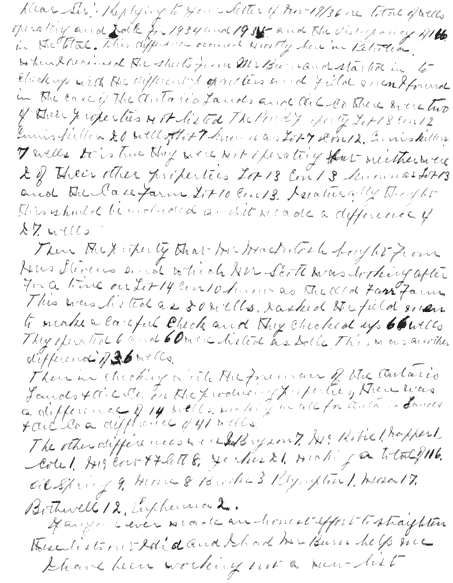 Dear Sir: Replying to your letter of Nov 19/36 re total of wells
operating and Idle for 1934 and 1935 and the discrepancy of 116
in the total. This difference occurred mostly here in Petrolea.
When I received the sheets from Mr Burn and started in to
check up with the different operators and field men I found
in the case of the Ontario Lands and Oil Co there were two
of their properties not listed The Property Lot 18 Con 12
Enniskillen 20 wells, Lot 7 known as Lot 7 Con 12, Enniskillen
7 wells. It is true they were not operating but neither were
2 of their other properties Lot 13 Con 13 known as Lot 13
and the Case Farm Lot 10 Con 13. I naturally thought
this should be included and it made a difference of
27 wells.
Then the property that Mr MacIntosh bought from
Mrs Stevens and which Mr Scott was looking after
for a time on Lot 14 Con 10 known as the old Farr Farm
This was listed as 30 wells. I asked the field men
to make a careful check and they checked up 66 wells
They operated 6 and 60 were listed as Idle This was another
difference of 36 wells.
Then in checking with the Foreman of the Ontario
Lands & Oil Co. on the producing Properties, there was
a difference of 14 wells, making in all for Ontario Lands
& Oil Co a difference of 41 wells
The other differences were Bryson 7, Mc 1, 1,
Cole 1, 8, 21, making a total of 116.
Oil Spring 9, 8 3 Plympton 1, Mosa 17,
Bothwell 12, Euphemia 2.
If anyone ever made an honest effort to straighten
these lists out I did and I had Mr Burn help me
I have been working out a new list